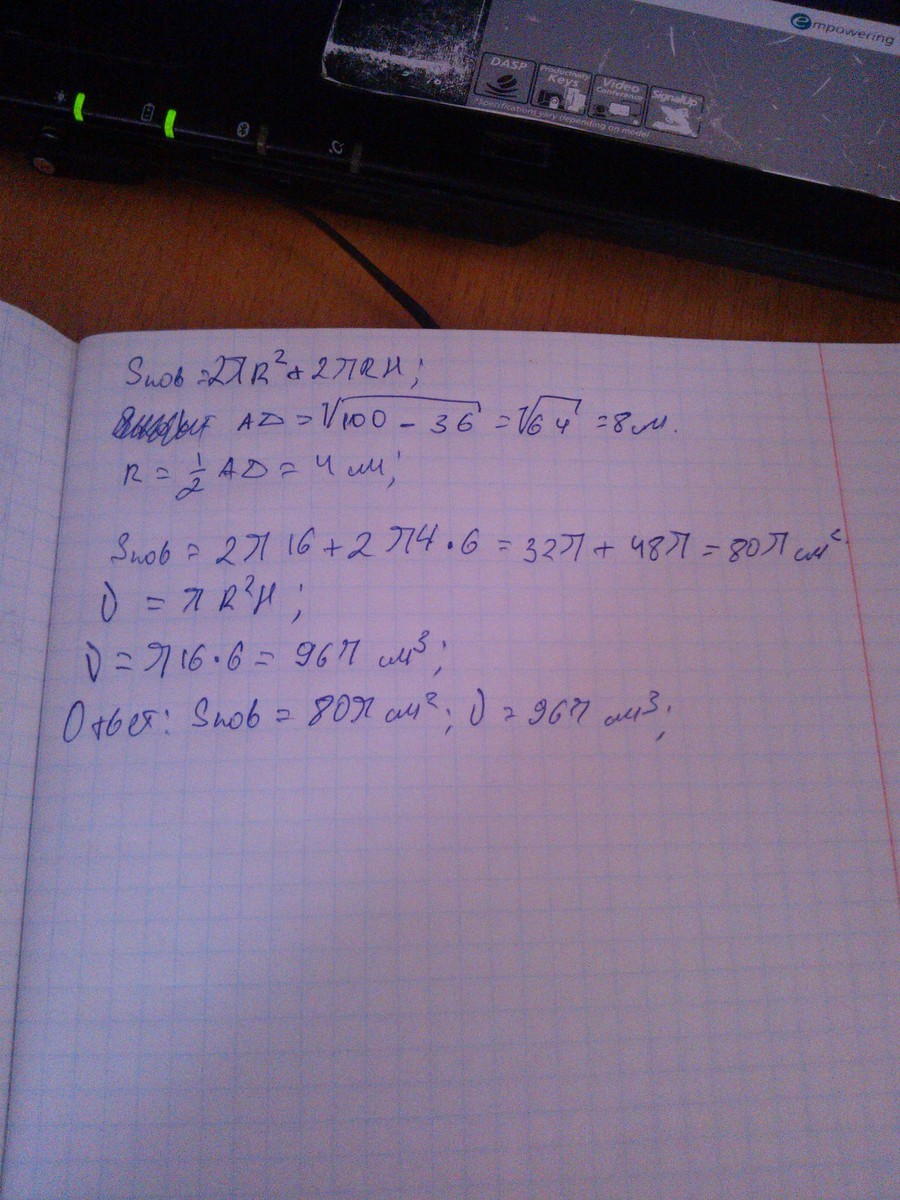 empowering
DASP
Productivity Keys
Video Conference
SignalUp
*specifications vary depending on model
Sпов = 2πR² + 2πRH;
AD = √100 - 36 = √64 = 8 см.
R = 1/2 AD = 4 см;
Sпов = 2π 16 + 2 π4 · 6 = 32π + 48π = 80π см²
V = π R²H;
V = π16 · 6 = 96π см³;
Ответ: Sпов = 80π см²; V = 96π см³;